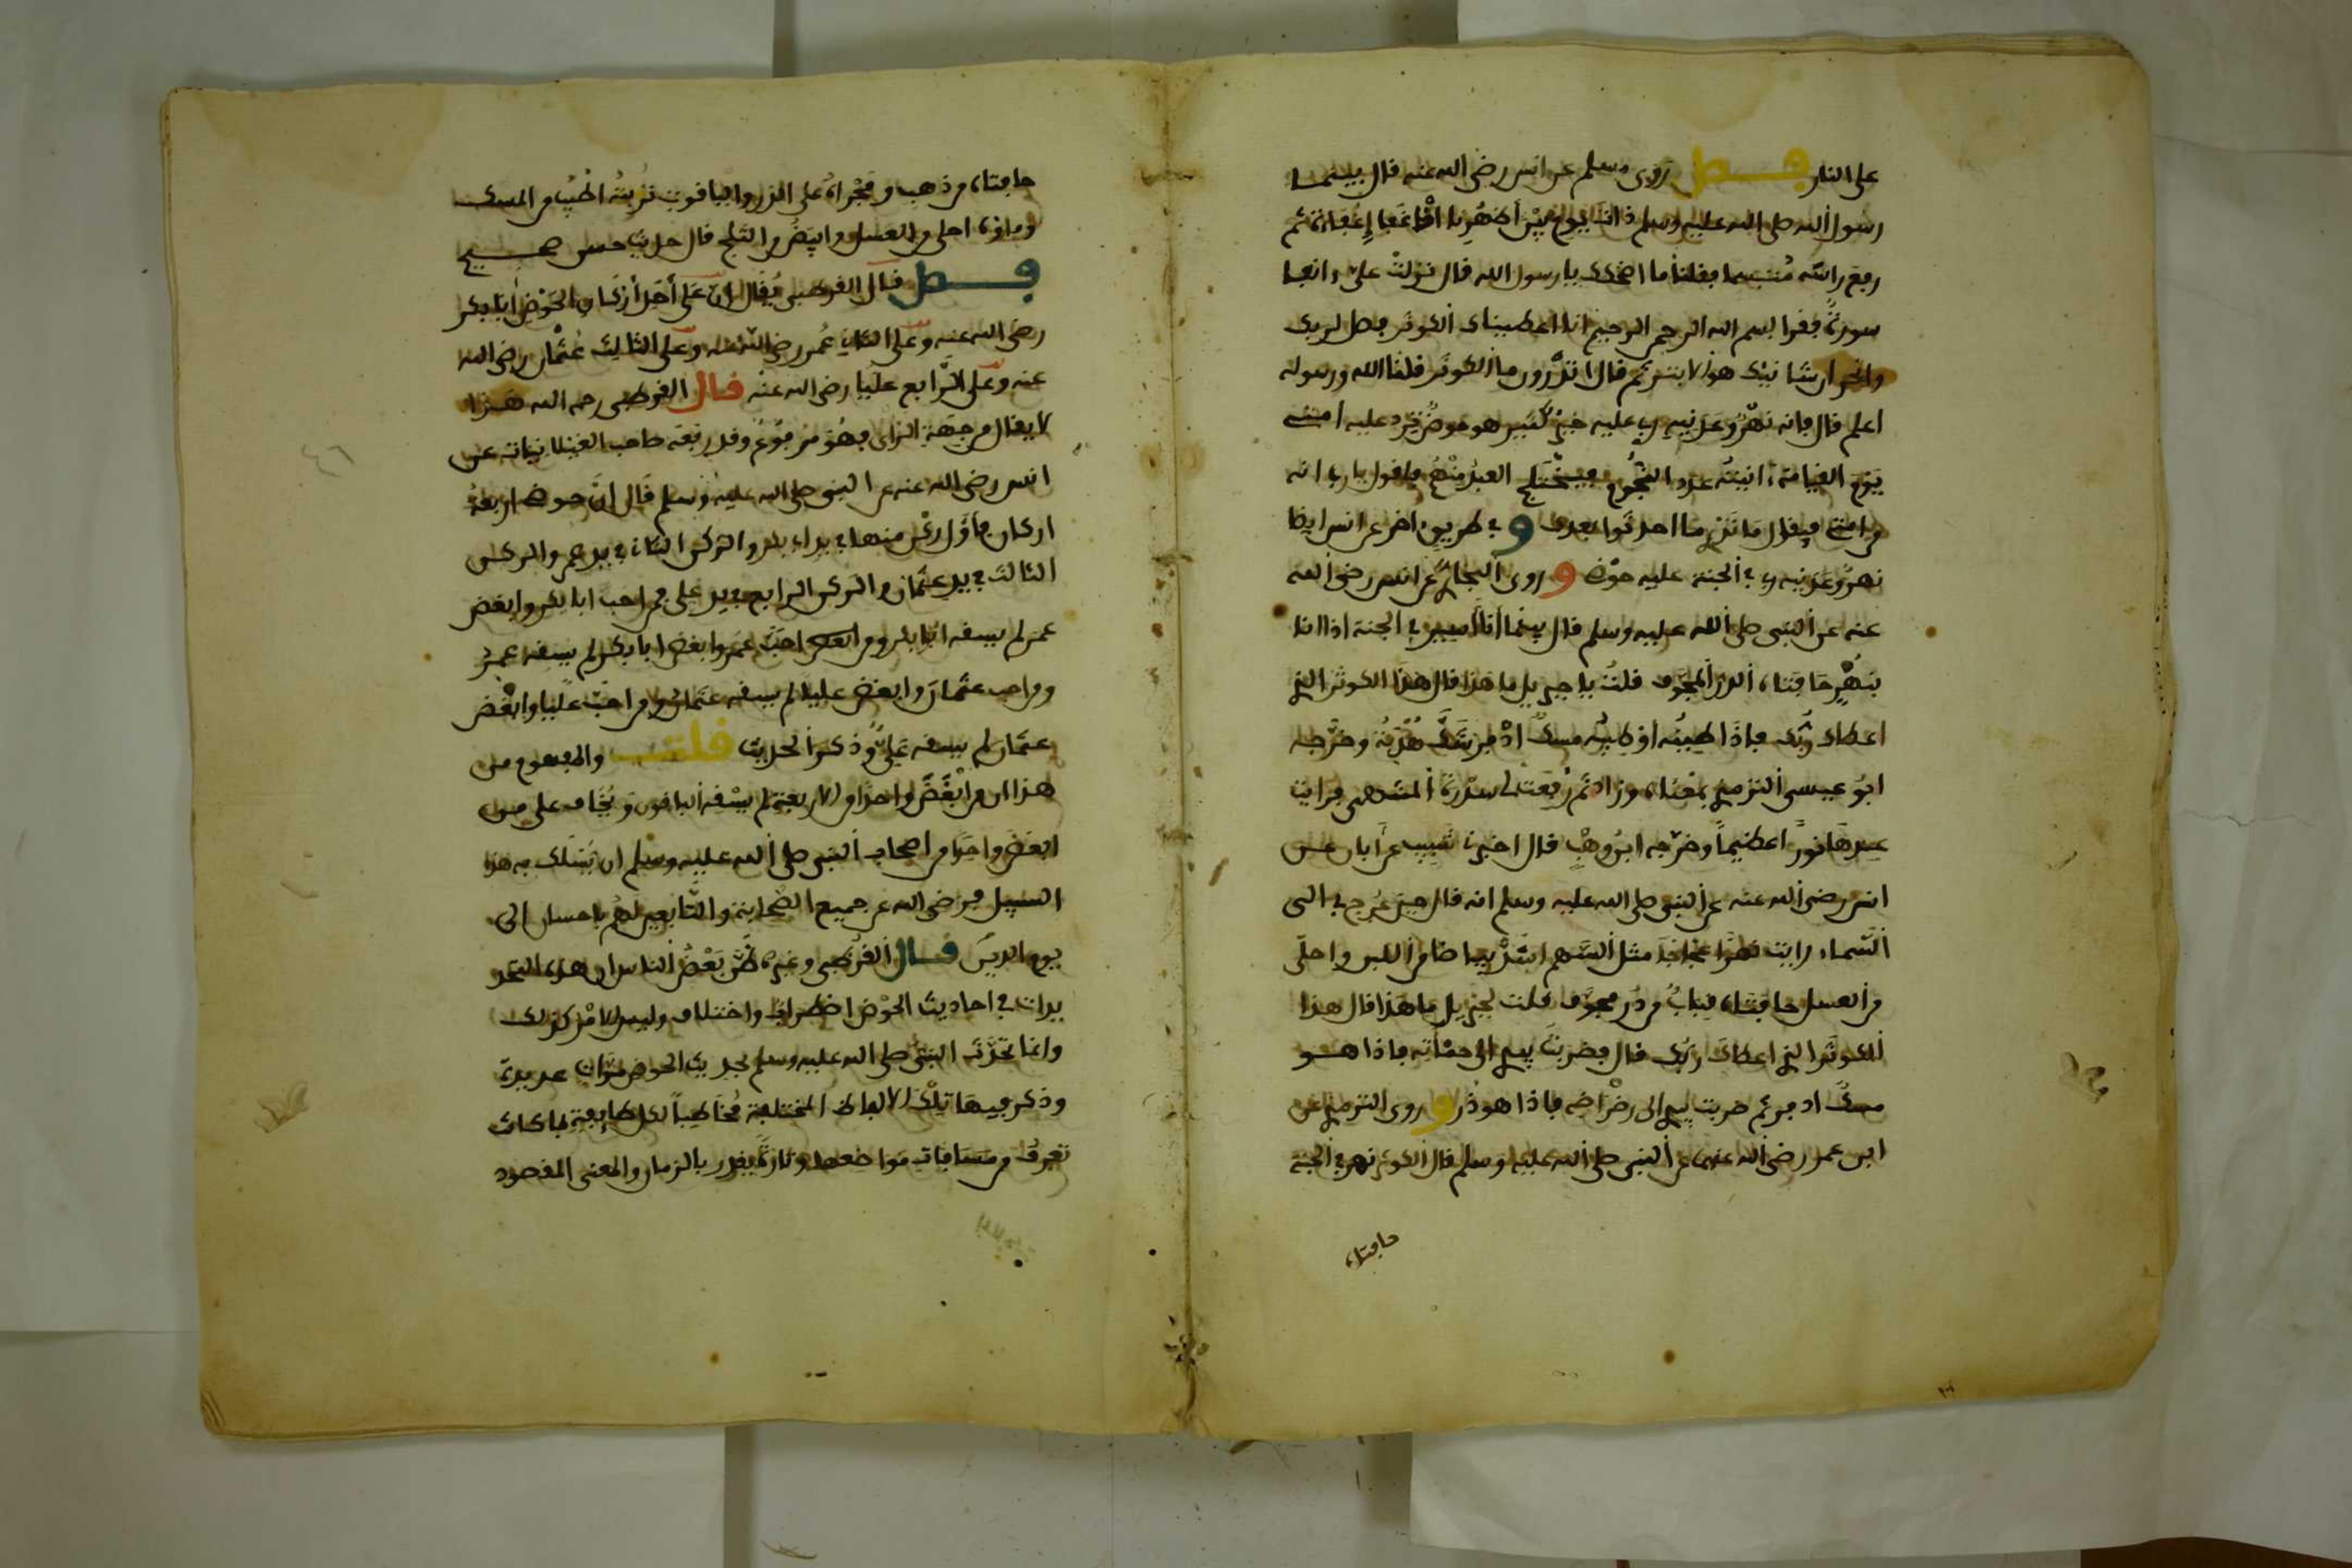 على النار فصل روى مسلم عن انس رضي الله عنه قال بينما
رسول الله صلى الله عليه وسلم ذات يوم بين أظهرنا إذ أغفا إغفاءة ثم
رفع راسه متبسما فقلنا ما اضحكك يا رسول الله قال نزلت علي ءانفا
سورة فقرا بسم الله الرحمن الرحيم انا اعطيناك الكوثر فصل لربك
وانحر ان شانئك هو الابتر ثم قال اتدرون ما الكوثر قلنا الله ورسوله
اعلم قال فانه نهر وعدنيه ربي عليه خير كثير هو حوض ترد عليه امتي
يوم القيامة ءانيته عدد النجوم فيختلج العبد منهم فاقول يا رب انه
من امتي فيقول ما تدري ما احدثوا بعدك و في طريق اخر عن انس ايضا
نهر وعدنيه ربي في الجنة عليه حوض و روى البخاري عن انس رضي الله
عنه عن النبي صلى الله عليه وسلم قال بينما أنا أسير في الجنة اذا انا
بنهر حافتاه الدر المجوف قلت يا جبريل ما هذا قال هذا الكوثر الذي
اعطاك ربك فاذا طينه او طيبه مسك اذفر شك هدبة وخرجه
ابو عيسى الترمذي بمعناه وزاد ثم رفعت لي سدرة المنتهى فرايت
عندها نورا عظيما وخرجه ابن وهب قال اخبرني شبيب عن أبان عن
انس رضي الله عنه عن النبي صلى الله عليه وسلم انه قال حين عرج بي الى
السماء رايت نهرا عجاجا مثل السهم اشد بياضا من اللبن واحلى
من العسل حافتاه قباب من در مجوف قلت لجبريل ما هذا قال هذا
الكوثر الذي اعطاك ربك قال فضربت بيدي الى حمأته فاذا هو
مسك اذفر ثم ضربت بيدي الى رضراضه فاذا هو در و روى الترمذي عن
ابن عمر رضي الله عنهما عن النبي صلى الله عليه وسلم قال الكوثر نهر في الجنة
حافتاه
حافتاه من ذهب ومجراه على الدر والياقوت تربته اطيب من المسك
وماؤه احلى من العسل وابيض من الثلج قال حديث حسن صحيح
فصل قال القرطبي يقال ان على أحد أركان الحوض أبا بكر
رضي الله عنه وعلى الثاني عمر رضي الله عنه وعلى الثالث عثمان رضي الله
عنه وعلى الرابع عليا رضي الله عنه قال القرطبي رحمه الله هذا
لا يقال من جهة الراى فهو مرفوع وقد رفعه صاحب الغيلانيات عن
انس رضي الله عنه عن النبي صلى الله عليه وسلم قال ان حوضي اربعة
اركان فاول ركن منها في يد ابي بكر والركن الثاني في يد عمر والركن
الثالث في يد عثمان والركن الرابع في يد علي فمن احب ابا بكر وابغض
عمر لم يسقه ابو بكر ومن احب عمر وابغض ابا بكر لم يسقه عمر
ومن احب عثمان وابغض عليا لم يسقه عثمان ومن احب عليا وابغض
عثمان لم يسقه علي وذكر الحديث قلت والمفهوم من
هذا ان من ابغض واحدا من الاربعة لم يسقه الباقون ويخاف على من
ابغض واحدا من اصحاب النبي صلى الله عليه وسلم ان يسلك به هذا
السبيل فرضي الله عن جميع الصحابة والتابعين لهم باحسان الى
يوم الدين قال القرطبي وغيره ظن بعض الناس ان هذه التحديدات
في احاديث الحوض اضطراب واختلاف وليس الامر كذلك
وانما تحدث النبي صلى الله عليه وسلم بحديث الحوض مرات عديدة
وذكر فيها تلك الالفاظ المختلفة مخاطبا لكل طايفة بما كانت
تعرف من مسافات مواضعها وتارة يقدر بالزمان والمعنى المقصود
٤٦